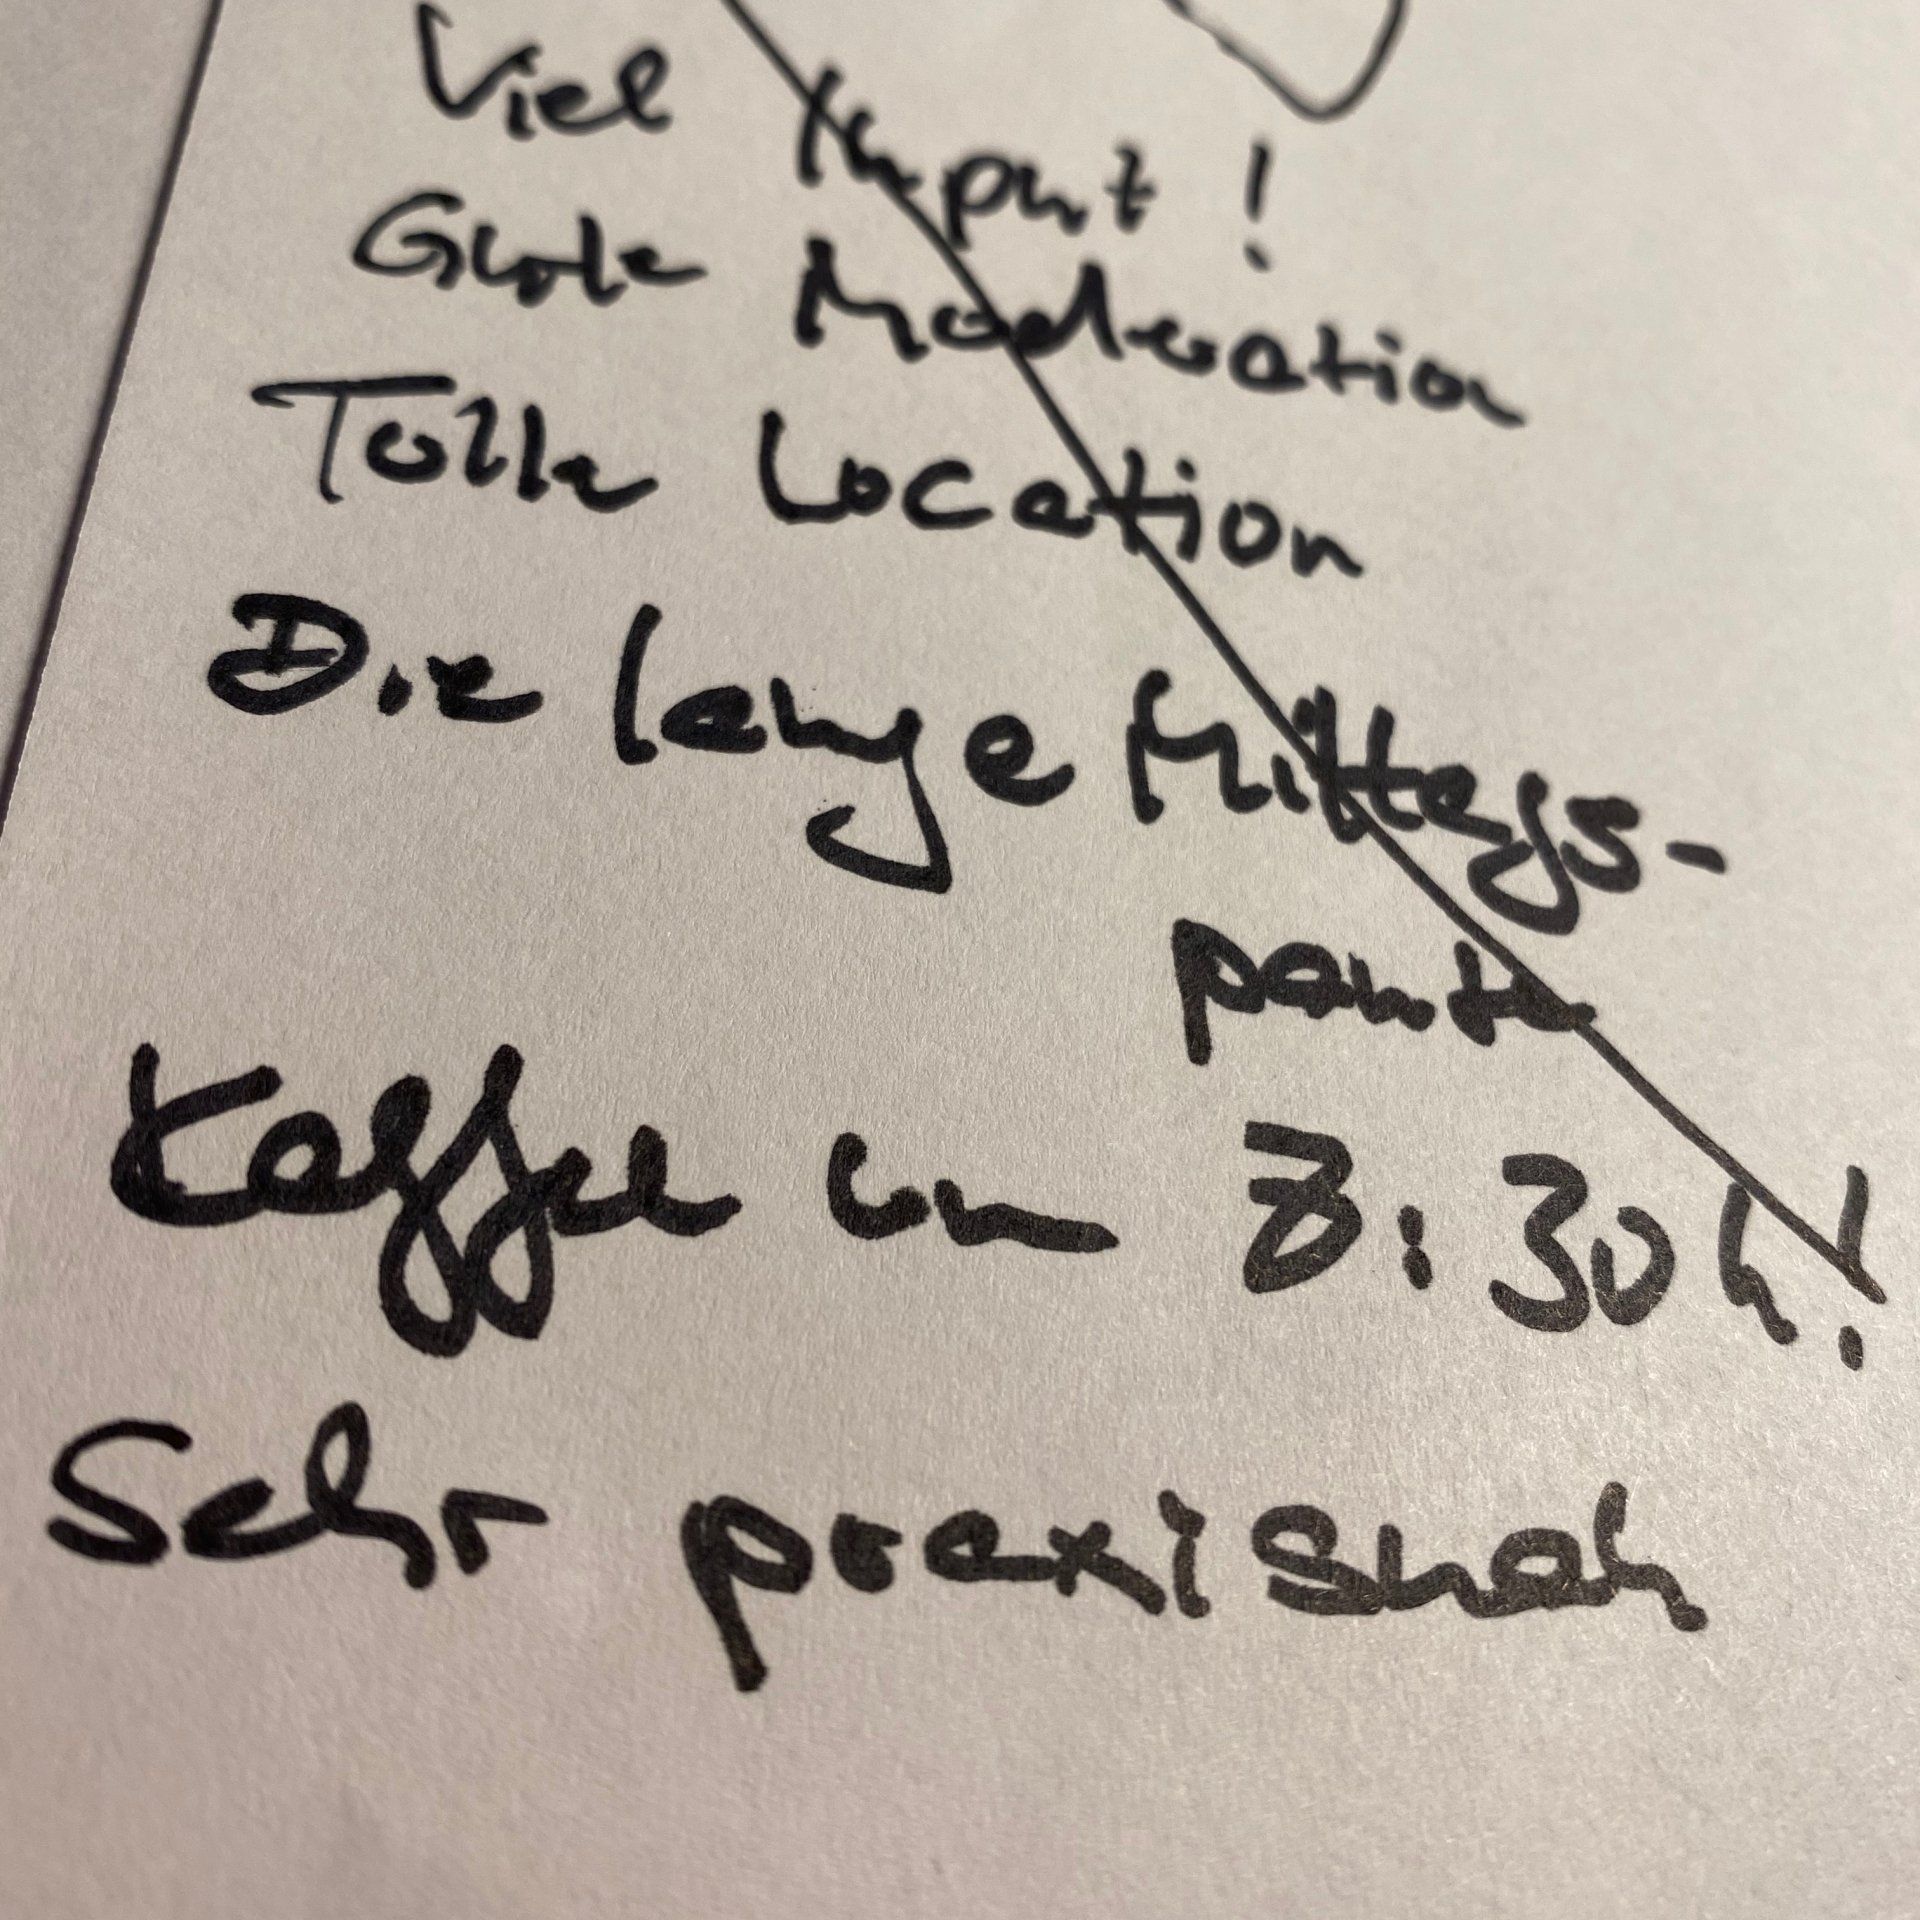 Viel Input!
Gute Moderation
Tolle Location
Die lange Mittags-
pause
Kaffee um 8:30 h!
Sehr praxisnah